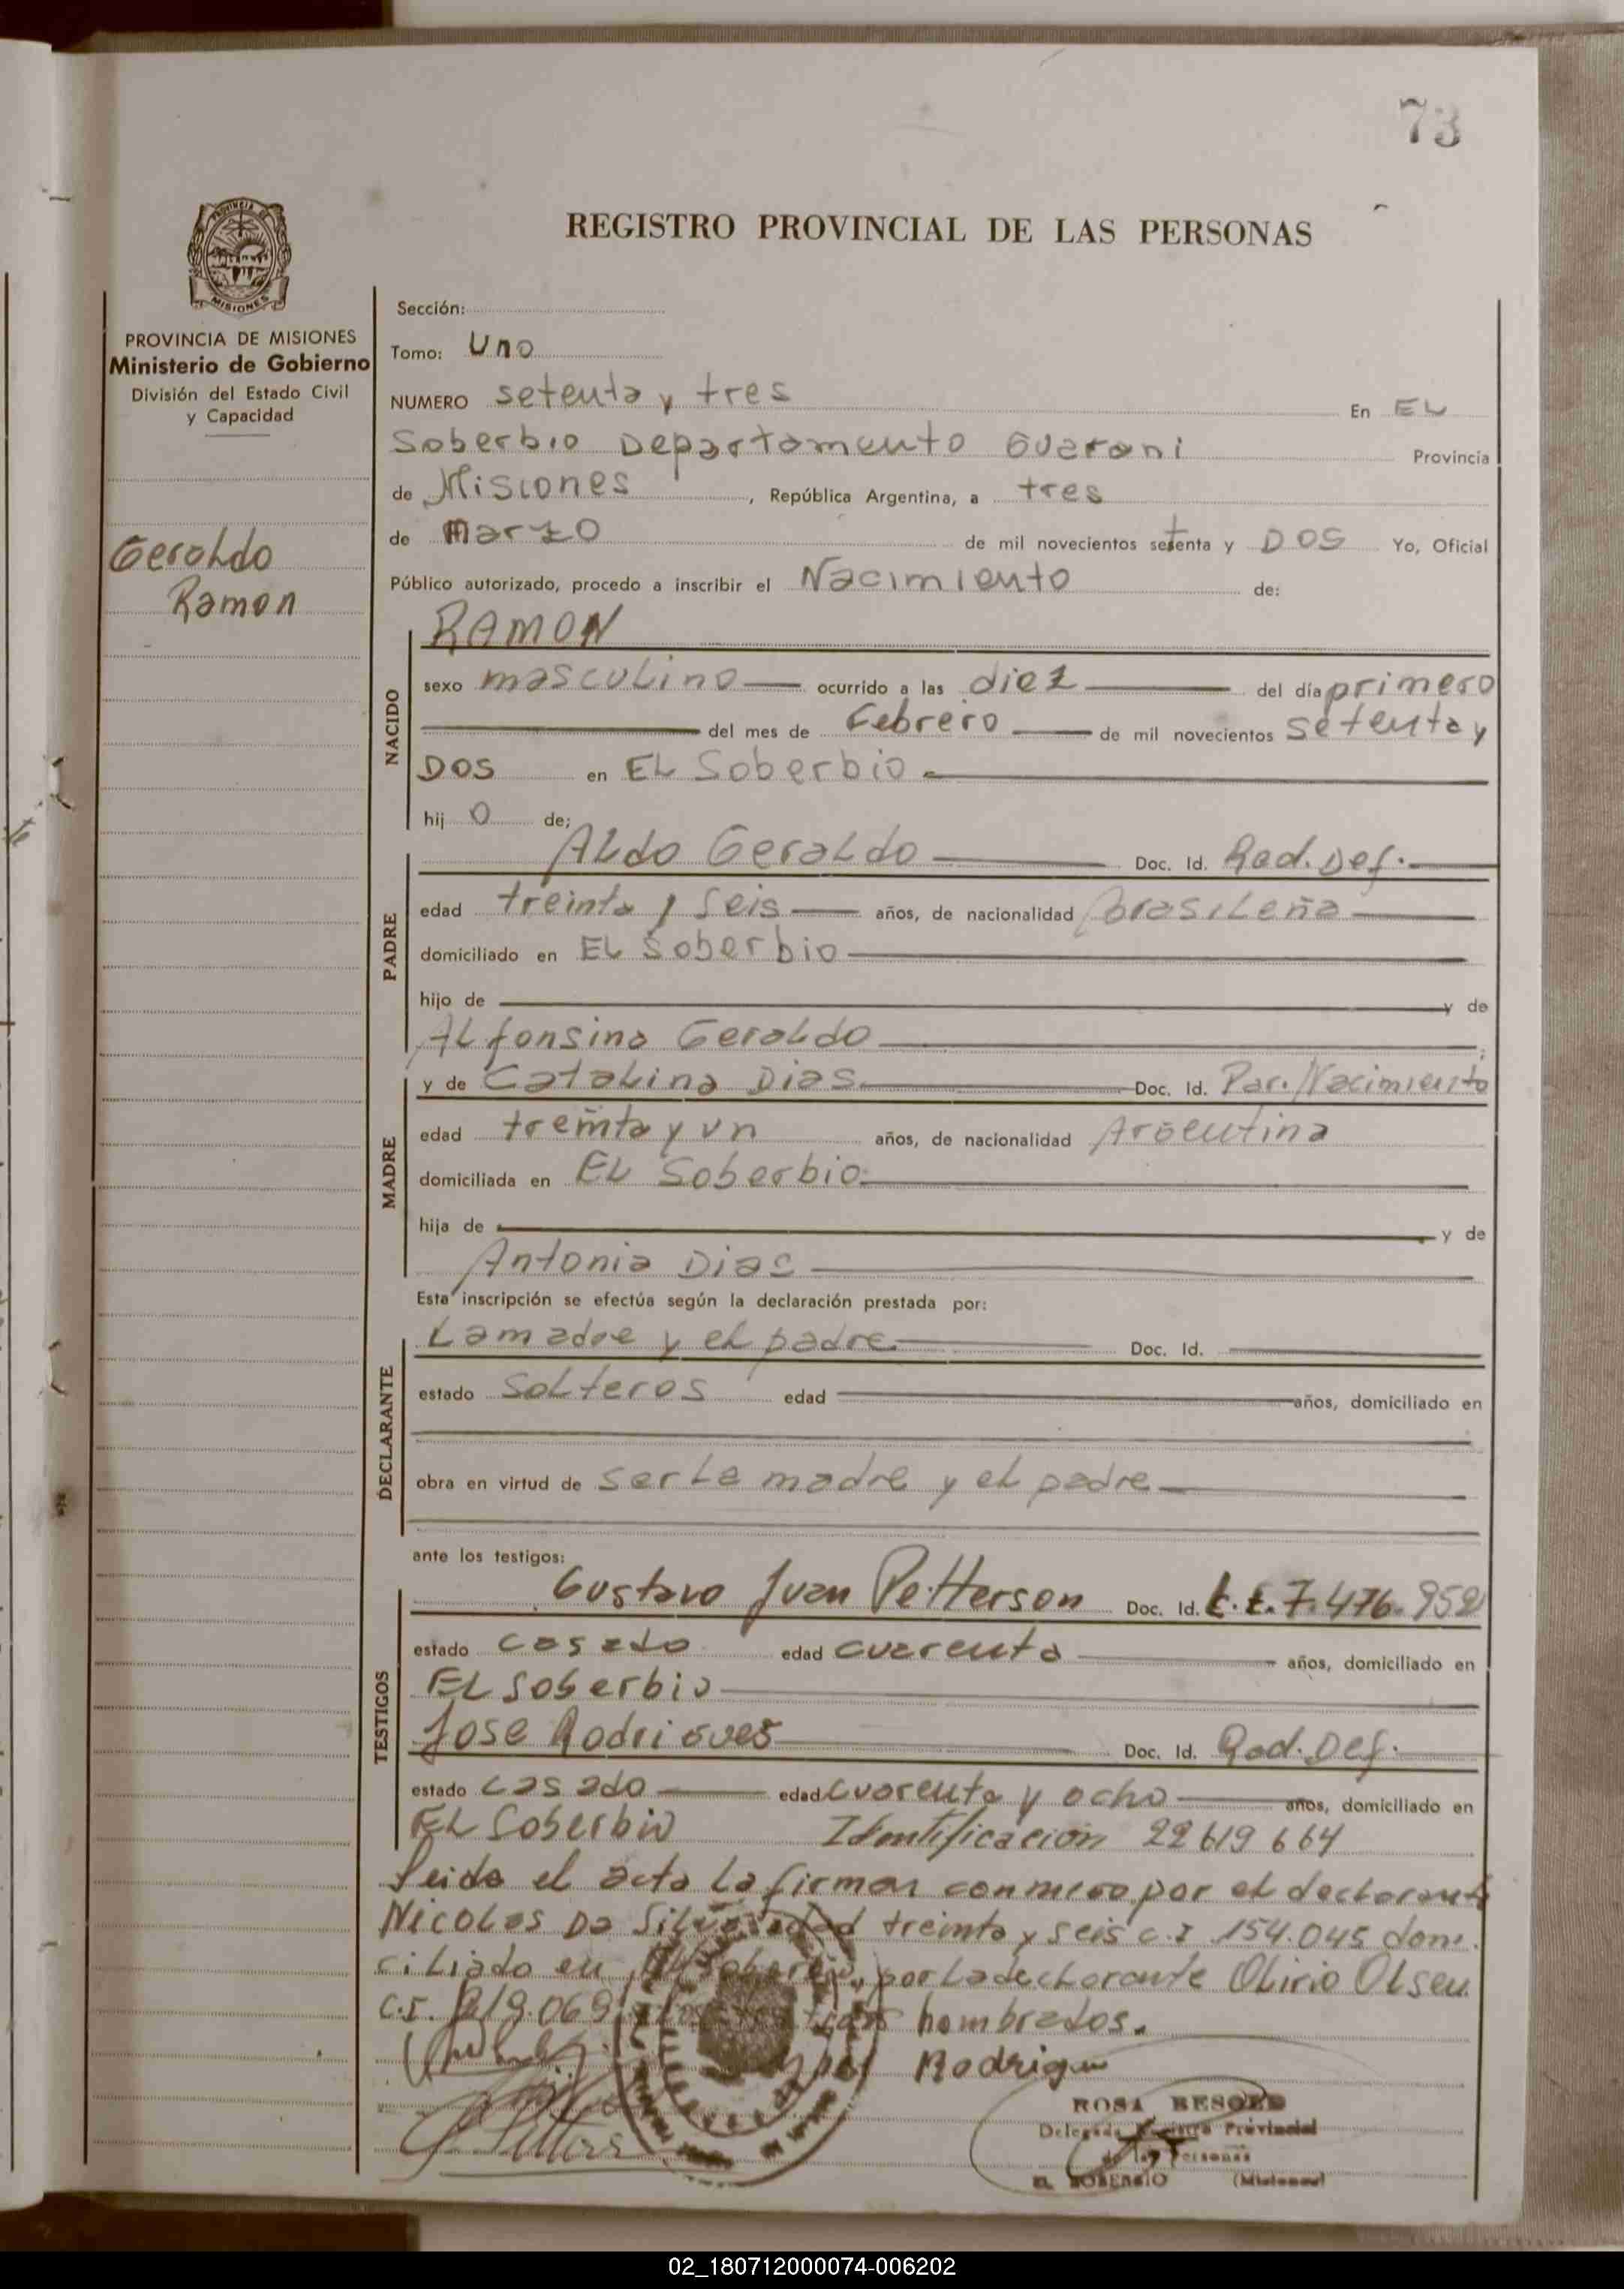 73
REGISTRO PROVINCIAL DE LAS PERSONAS
PROVINCIA DE
MISIONES
PROVINCIA DE MISIONES
Ministerio de Gobierno
División del Estado Civil
y Capacidad
Geraldo
Ramon
Sección:
Tomo: Uno
NUMERO setenta y tres En EL
Soberbio Departamento Guarani Provincia
de Misiones, República Argentina, a tres
de Marzo de mil novecientos setenta y DOS Yo, Oficial
Público autorizado, procedo a inscribir el Nacimiento de:
NACIDO
RAMON
sexo masculino ocurrido a las diez del día primero
del mes de Febrero de mil novecientos setenta y
DOS en EL Soberbio
hij o de;
PADRE
Aldo Geraldo Doc. Id. Rad. Def.
edad treinta y seis años, de nacionalidad Brasileña
domiciliado en EL Soberbio
hijo de y de
Alfonsina Geraldo ;
MADRE
y de Catalina Dias Doc. Id. Par. Nacimiento
edad treinta y un años, de nacionalidad Argentina
domiciliada en EL Soberbio
hija de y de
Antonia Dias
Esta inscripción se efectúa según la declaración prestada por:
DECLARANTE
La madre y el padre Doc. Id.
estado Solteros edad años, domiciliado en
obra en virtud de ser la madre y el padre
ante los testigos:
TESTIGOS
Gustavo Juan Petterson Doc. Id. L.E. 7.476.952
estado casado edad cuarenta años, domiciliado en
EL Soberbio
Jose Rodrigues Doc. Id. Rad. Def.
estado casado edad cuarenta y ocho años, domiciliado en
EL Soberbio Identificacion 22619664
Leida el acta la firman conmigo por el declarante
Nicolas Da Silva edad treinta y seis c.I 154.045 domi
ciliado en El Soberbio, por la declarante Olirio Olsen
C.I. 219.069 nombrados.
Rodrigu
ROSA BESOLD
Delegada Registro Provincial
de las Personas
EL SOBERBIO (Misiones)
02_180712000074-006202